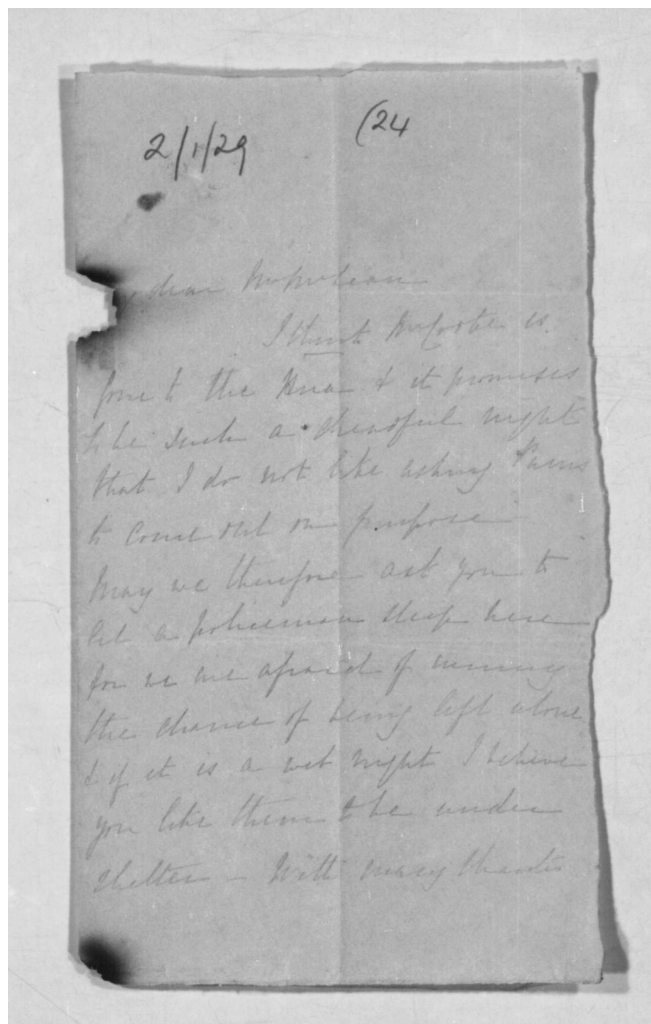 2/1/29 (24
dear
I think is
gone to the & it promises
to be such a dreadful night
that I do not like asking
to come out on purpose
May we therefore ask you to
let a policeman sleep here
for we are afraid of running
the chance of being left alone
& if it is a wet night I believe
you like them to be under
shelter – With many thanks